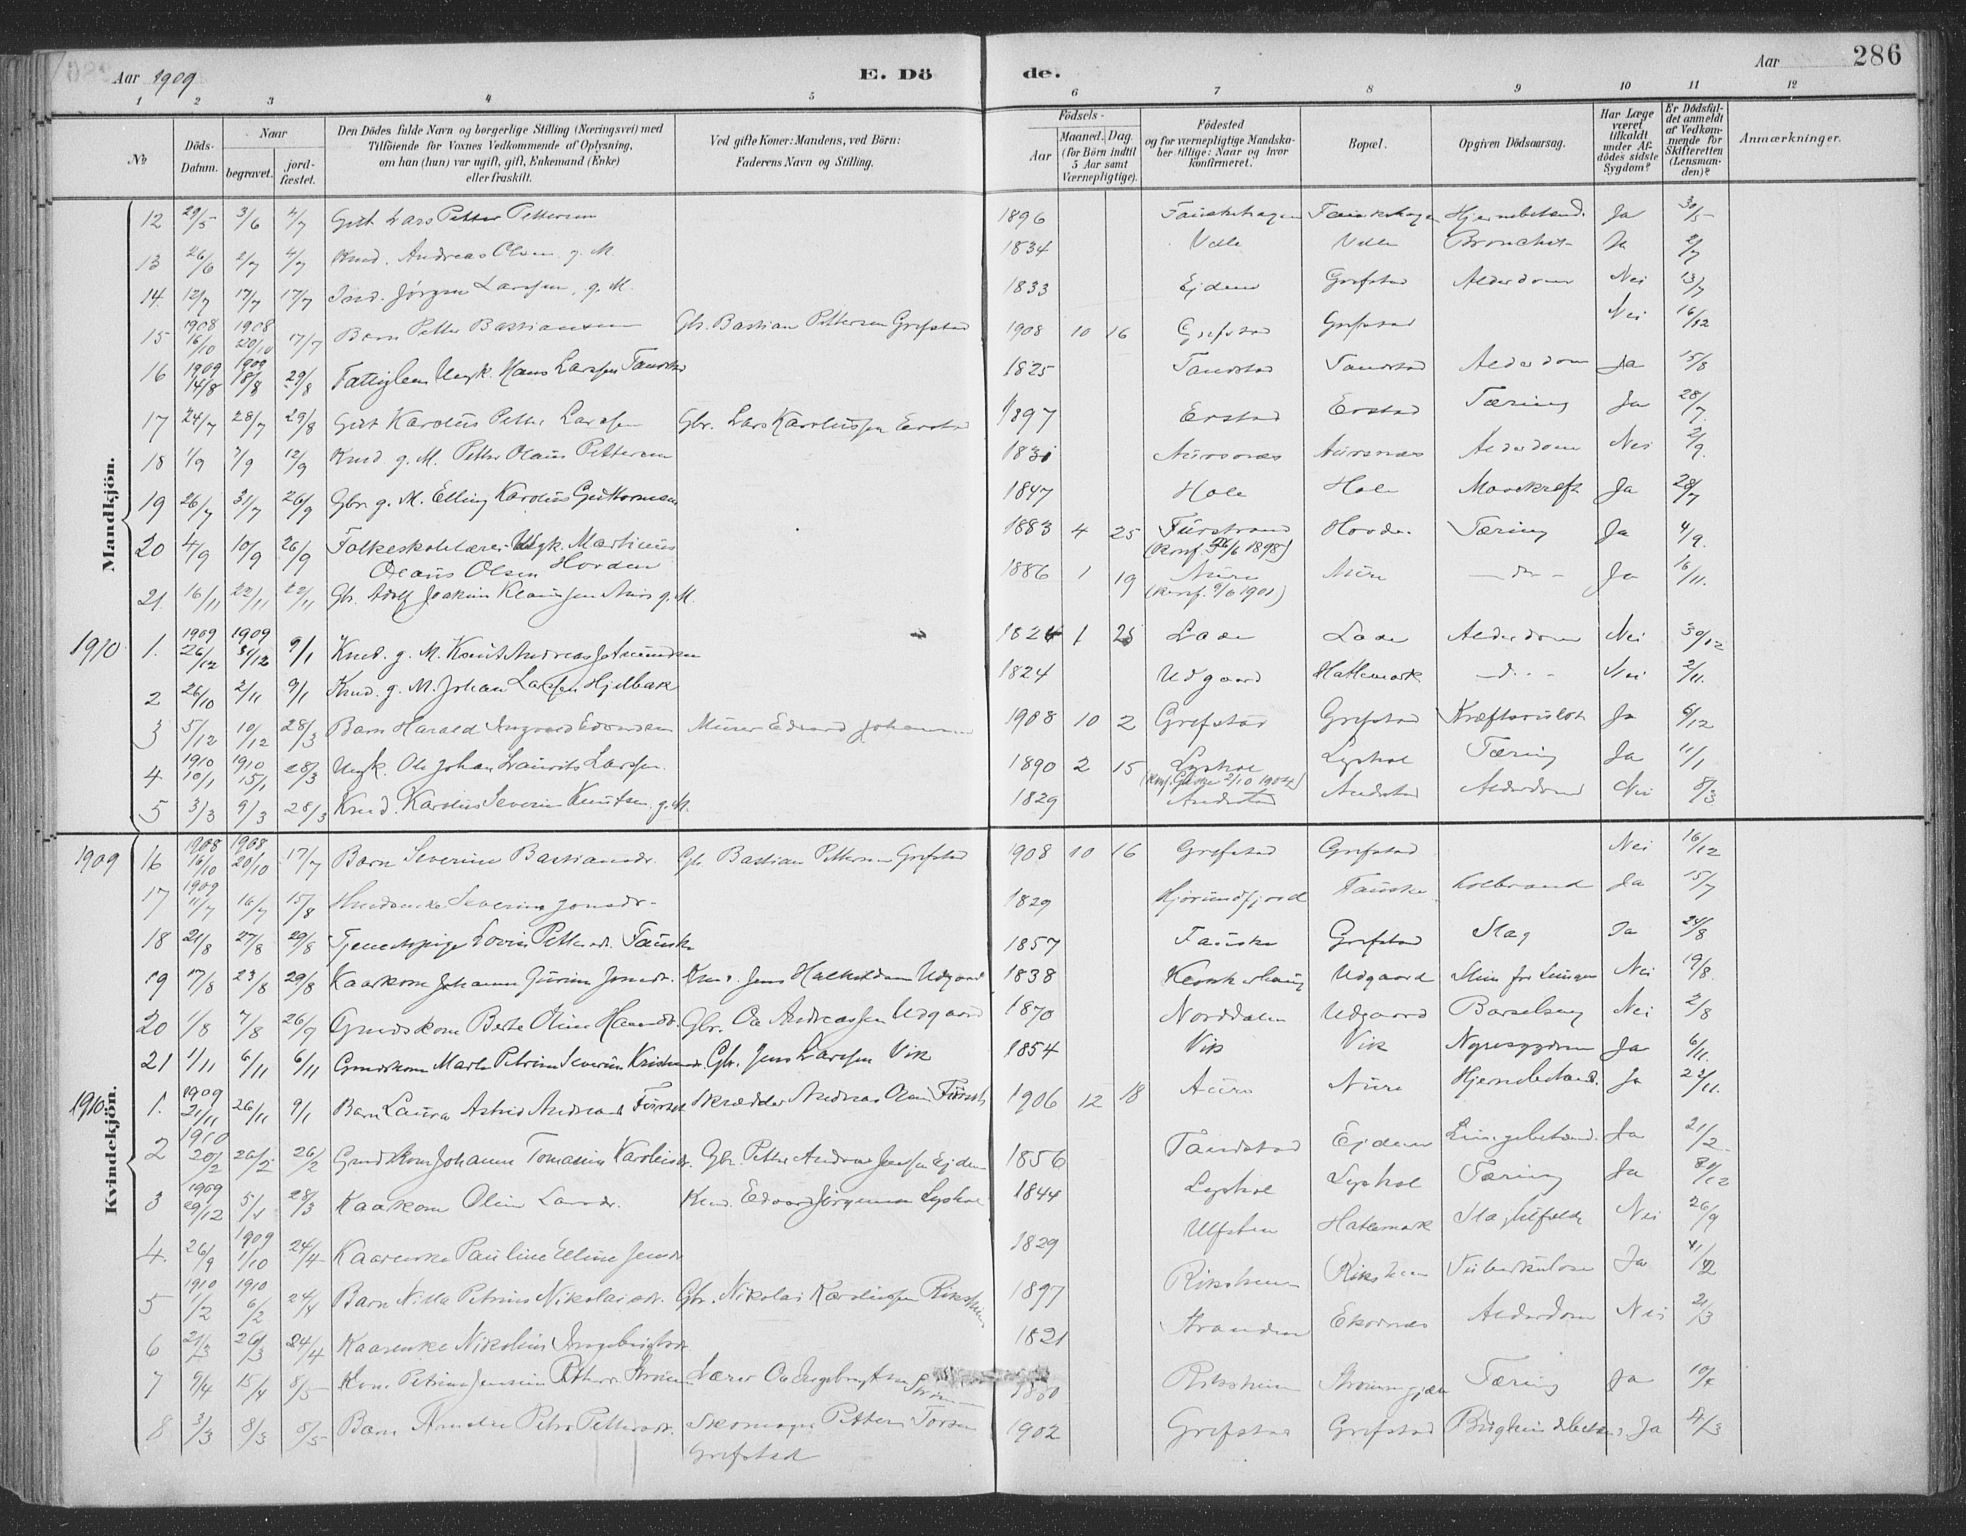 Aar 1909
E. Dö
de.
Aar
286
1 2 3 4 5 6 7 8 9 10 11 12
No
Döds-Datum.
Naar
begravet.
jordfæstet.
Den Dödes fulde Navn og borgerlige Stilling (Næringsvei) med
Tilföiende for Voxnes Vedkommende af Oplysning,
om han (hun) var ugift, gift, Enkemand (Enke)
eller fraskilt.
Ved gifte Koner: Mandens, ved Börn:
Faderens Navn og Stilling.
Födsels-
Aar
Maaned.
Dag.
(for Börn indtil
5 Aar samt
Værnepligtige).
Födested
og for værnepligtige Mandskaber tillige: Naar og hvor
konfirmeret.
Bopæl.
Opgiven Dödsaarsag.
Har Læge
været
tilkaldt
under Afdödes sidste
Sygdom?
Er Dödsfaldet anmeldt
af Vedkommende for
Skifteretten
(Lensmanden)?
Anmærkninger.
Mandkjön.
12 29/5 3/6 4/7 Gut Lars Petter Pettersen 1896 Hjernebetænd. Ja 30/5
13 26/6 2/7 4/7 Kmd. Andreas Olsen g. M. 1834 Velle Velle Bronchit Ja 2/7
14 12/7 17/7 17/7 Jørgen Larssen, g. M. 1833 Ejdem Grefstad Alderdom Nei 13/7
15 1908 16/10 1908 20/10 17/7 Barn Petter Bastiansen Gbr. Bastian Pettersen Grefstad 1908 10 16 Grefstad Grefstad Nei 16/12
16 1909 14/8 1909 18/8 29/8 Fattiglem Ungk. Hans Larssen Tandstad 1825 Tandstad Tandstad Alderdom Ja 15/8
17 24/7 28/7 29/8 Gut Karolus Petter Larssen Gbr. Lars Karolussen Erstad 1897 Erstad Erstad Tæring Ja 28/7
18 1/9 7/9 12/9 Kmd g. M. Petter Olaus Pettersen 1831 Aursnes Aursnes Alderdom Nei 2/9
19 26/7 31/7 26/9 Gbr g. M. Elling Karolus Guttormsen 1847 Hole Hole Mavekræft Ja 28/7
20 4/9 10/9 26/9 Folkeskolelærer Ungk. Martinus
Olaus Olsen Hovden 1883 4 25 Furstrand Hovde Tæring Ja 4/9
21. 16/11 22/11 22/11 Gbr. Adolf Joakim Klausen Aure g. M. 1886 1 19 Aure (Konf. 9/6 1901) Aure — do — Ja 16/11
1910
1. 1909 26/12 1909 31/12 9/1 Kmd. g. M. Knut Andreas 1824 1 25 Lade Lade Alderdom Nei 30/12
2 26/10 2/11 9/1 Kmd. g. M. Johan Larssen Hjelbak 1824 Udgaard Hatlemark — d — Nei 2/11
3 5/12 10/12 28/3 Barn Harald Ingvald Edvardsen Murer Edvard Johansen 1908 10 2 Grefstad Grefstad Ja 6/12
4 1910 10/1 1910 15/1 28/3 Ungk. Ole Johan Laurits Larssen 1890 2 15 Lyshol Lyshol Tæring Ja 11/1
5 3/3 9/3 28/3 Kmd. Karolus Severin Knutsen g. M. 1829 Andestad Andestad Alderdom Nei 8/3
1909
Kvindekjön.
16 1908 16/10 1908 20/10 17/7 Barn Severine Bastiansdr. Gbr Bastian Pettersen Grefstad 1908 10 16 Grefstad Grefstad Nei 16/12
17 1909 11/7 16/7 15/8 Severine Jonsdr. 1829 Hjørundfjord Fauske Koldbrand Ja 15/7
18 21/8 27/8 29/8 Tjenestepige Lovise Pettersdr. Fauske 1857 Fauske Grefstad Slag Ja 24/8
19 17/8 23/8 29/8 Kaarkone Johanne Jonsdr. Kmd. Jens Udgaard 1838 Udgaard Slim for Lungen Nei 19/8
20 1/8 7/8 26/9 Gmdskone Berte Oline Gbr. Ole Andreassen Udgaard 1870 Norddalen Udgaard Barselseng Nei 2/8
21 1/11 6/11 6/11 Gmdskone Marte Petrine Severine Gbr. Jens Larssen Vik 1854 Vik Vik Nyresygdom Ja 6/11
1910
1. 1909 21/11 26/11 9/1 Barn Laura Astrid Skrædder Andreas Olsen 1906 12 18 Aure Aure Hjernebetænd. Ja 22/11
2 1910 20/2 26/2 26/2 Gmdskone Johanne Tomasine Gbr. Petter Andreas Jenssen Ejdem 1856 Tandstad Ejdem Lungebetænd. Ja 21/2
3 1909 29/12 5/1 28/3 Kaarkone Oline Larsdr. Kmd. Edvard Jørgensen Lyshol 1844 Lyshol Lyshol Tæring Ja 30/12
4. 26/9 1909 1/10 24/4 Kaarenke Pauline Elline Jensdr 1829 Ulfsten Hatlemark Slagtilfælde Nei 26/9
5 1910 1/2 1910 6/2 24/4 Barn Nilla Petrine Nikolaisdr. Gbr. Nikolai Karolussen Riksheim 1897 Riksheim Riksheim Tuberkulose Ja
6 21/3 26/3 24/4 Kaarenke Nikoline Ingebrigtsdr. 1821 Stranden Ekornes Alderdom Nei 21/3
7 9/4 15/4 8/5 Kone Petrine Lærer Ole Ingebrigtsen Strømme Riksheim Tæring Ja 10/4
8 3/3 8/3 8/5 Barn Petra Pettersdr. Skomager Petter
Grefstad 1902 Grefstad Grefstad Ja 4/3